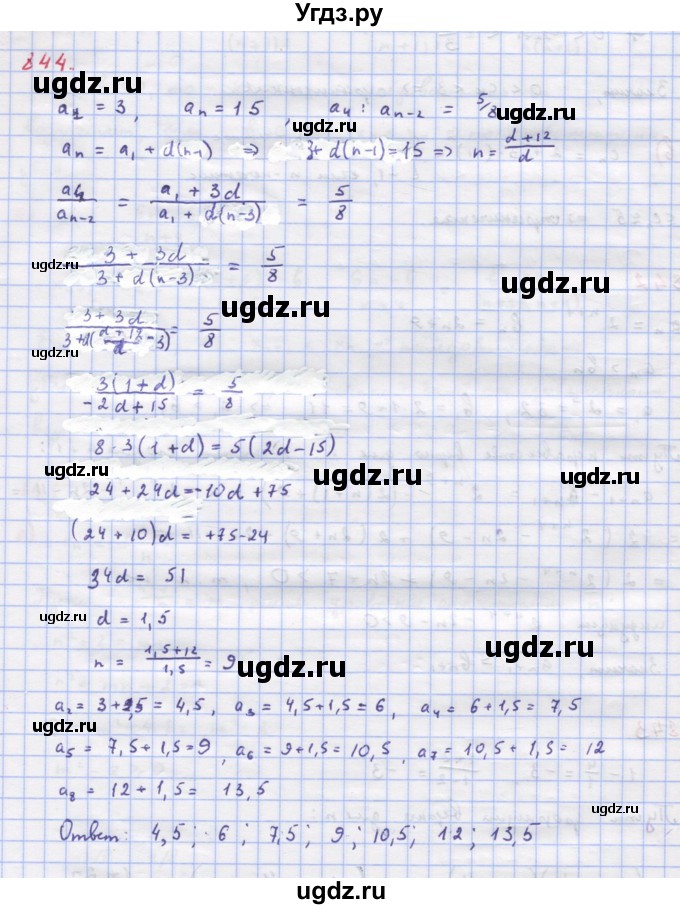 Угдз.ру
844.
a₁ = 3, aₙ = 15, a₄ : aₙ₋₂ = 5/8
ugdz.ru ugdz.ru
aₙ = a₁ + d(n-1) ⇒ 3 + d(n-1) = 15 ⇒ n = (d+12)/d
a₄/aₙ₋₂ = (a₁ + 3d)/(a₁ + d(n-3)) = 5/8
ugdz.ru
(3 + 3d)/(3 + d(n-3)) = 5/8
ugdz.ru
(3 + 3d)/(3+d((d+12)/d - 3)) = 5/8
ugdz.ru
3(1+d)/(-2d+15) = 5/8
8 · 3(1+d) = 5(2d-15)
ugdz.ru ugdz.ru
24 + 24d = -10d + 75
(24 + 10)d = +75-24
34d = 51
ugdz.ru
d = 1,5
ugdz.ru
n = (1,5+12)/1,5 = 9
ugdz.ru
a₂ = 3 + 1,5 = 4,5, a₃ = 4,5 + 1,5 = 6, a₄ = 6 + 1,5 = 7,5
ugdz.ru
a₅ = 7,5 + 1,5 = 9, a₆ = 9 + 1,5 = 10,5, a₇ = 10,5 + 1,5 = 12
a₈ = 12 + 1,5 = 13,5
ugdz.ru
Ответ: 4,5; 6; 7,5; 9; 10,5; 12; 13,5
ugdz.ru